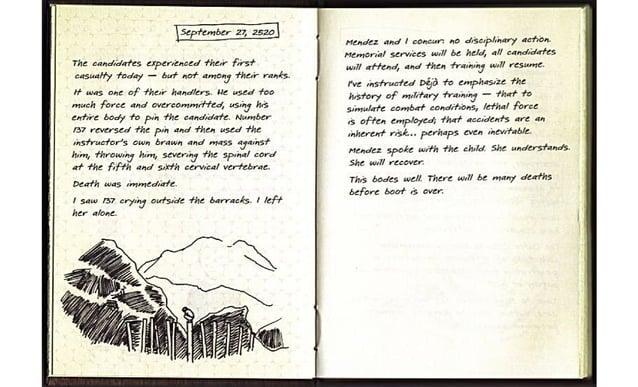 September 27, 2520
The candidates experienced their first
casualty today — but not among their ranks.
It was one of their handlers. He used too
much force and overcommitted, using his
entire body to pin the candidate. Number
137 reversed the pin and then used the
instructor's own brawn and mass against
him, throwing him, severing the spinal cord
at the fifth and sixth cervical vertebrae.
Death was immediate.
I saw 137 crying outside the barracks. I left
her alone.
Mendez and I concur: no disciplinary action.
Memorial services will be held, all candidates
will attend, and then training will resume.
I've instructed Déjà to emphasize the
history of military training — that to
simulate combat conditions, lethal force
is often employed; that accidents are an
inherent risk... perhaps even inevitable.
Mendez spoke with the child. She understands.
She will recover.
This bodes well. There will be many deaths
before boot is over.